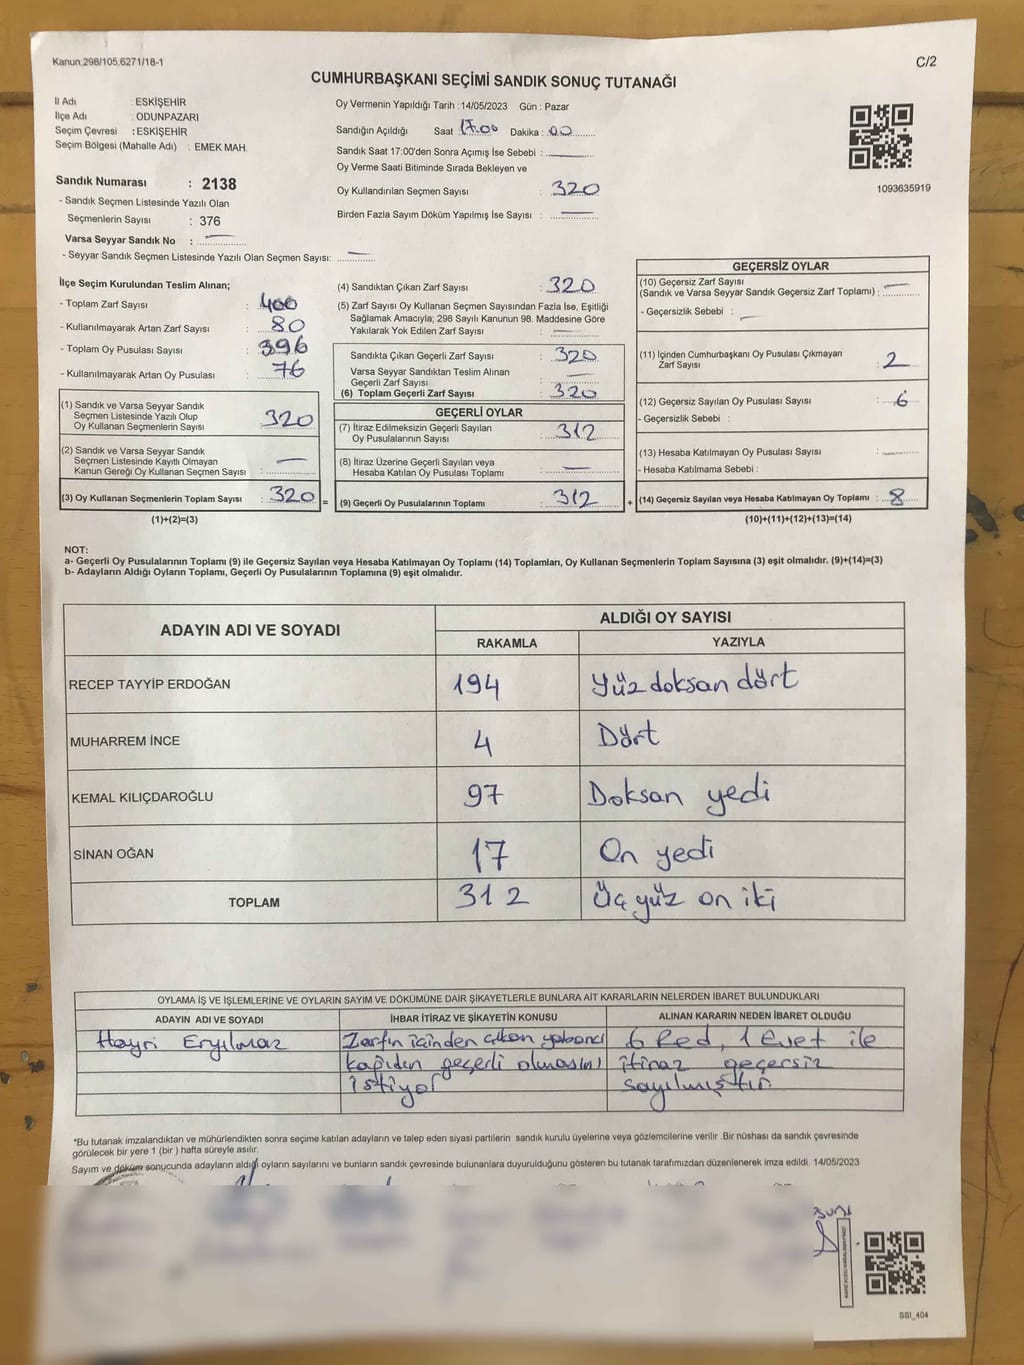 Kanun,298/105,6271/18-1
C/2
CUMHURBAŞKANI SEÇİMİ SANDIK SONUÇ TUTANAĞI
İl Adı : ESKİŞEHİR
İlçe Adı : ODUNPAZARI
Seçim Çevresi : ESKİŞEHİR
Seçim Bölgesi (Mahalle Adı) : EMEK MAH.
Sandık Numarası : 2138
- Sandık Seçmen Listesinde Yazılı Olan
Seçmenlerin Sayısı : 376
Varsa Seyyar Sandık No : —
- Seyyar Sandık Seçmen Listesinde Yazılı Olan Seçmen Sayısı: —
Oy Vermenin Yapıldığı Tarih : 14/05/2023 Gün : Pazar
Sandığın Açıldığı Saat : 17.00 Dakika : 00
Sandık Saat 17:00'den Sonra Açımış İse Sebebi : —
Oy Verme Saati Bitiminde Sırada Bekleyen ve
Oy Kullandırılan Seçmen Sayısı : 320
Birden Fazla Sayım Döküm Yapılmış İse Sayısı : —
1093635919
İlçe Seçim Kurulundan Teslim Alınan;
- Toplam Zarf Sayısı : 400
- Kullanılmayarak Artan Zarf Sayısı : 80
- Toplam Oy Pusulası Sayısı : 396
- Kullanılmayarak Artan Oy Pusulası : 76
(1) Sandık ve Varsa Seyyar Sandık
Seçmen Listesinde Yazılı Olup
Oy Kullanan Seçmenlerin Sayısı : 320
(2) Sandık ve Varsa Seyyar Sandık
Seçmen Listesinde Kayıtlı Olmayan
Kanun Gereği Oy Kullanan Seçmen Sayısı : —
(3) Oy Kullanan Seçmenlerin Toplam Sayısı : 320 =
(1)+(2)=(3)
(4) Sandıktan Çıkan Zarf Sayısı : 320
(5) Zarf Sayısı Oy Kullanan Seçmen Sayısından Fazla İse, Eşitliği
Sağlamak Amacıyla; 298 Sayılı Kanunun 98. Maddesine Göre
Yakılarak Yok Edilen Zarf Sayısı : —
Sandıkta Çıkan Geçerli Zarf Sayısı : 320
Varsa Seyyar Sandıktan Teslim Alınan
Geçerli Zarf Sayısı : —
(6) Toplam Geçerli Zarf Sayısı : 320
GEÇERLİ OYLAR
(7) İtiraz Edilmeksizin Geçerli Sayılan
Oy Pusulalarının Sayısı : 312
(8) İtiraz Üzerine Geçerli Sayılan veya
Hesaba Katılan Oy Pusulası Toplamı : —
(9) Geçerli Oy Pusulalarının Toplamı : 312 +
GEÇERSİZ OYLAR
(10) Geçersiz Zarf Sayısı
(Sandık ve Varsa Seyyar Sandık Geçersiz Zarf Toplamı) : —
- Geçersizlik Sebebi : —
(11) İçinden Cumhurbaşkanı Oy Pusulası Çıkmayan
Zarf Sayısı : 2
(12) Geçersiz Sayılan Oy Pusulası Sayısı : 6
- Geçersizlik Sebebi :
(13) Hesaba Katılmayan Oy Pusulası Sayısı :
- Hesaba Katılmama Sebebi :
(14) Geçersiz Sayılan veya Hesaba Katılmayan Oy Toplamı : 8
(10)+(11)+(12)+(13)=(14)
NOT:
a- Geçerli Oy Pusulalarının Toplamı (9) ile Geçersiz Sayılan veya Hesaba Katılmayan Oy Toplamı (14) Toplamları, Oy Kullanan Seçmenlerin Toplam Sayısına (3) eşit olmalıdır. (9)+(14)=(3)
b- Adayların Aldığı Oyların Toplamı, Geçerli Oy Pusulalarının Toplamına (9) eşit olmalıdır.
ADAYIN ADI VE SOYADI
ALDIĞI OY SAYISI
RAKAMLA YAZIYLA
RECEP TAYYİP ERDOĞAN 194 Yüz doksan dört
MUHARREM İNCE 4 Dört
KEMAL KILIÇDAROĞLU 97 Doksan yedi
SİNAN OĞAN 17 On yedi
TOPLAM 312 Üç yüz on iki
OYLAMA İŞ VE İŞLEMLERİNE VE OYLARIN SAYIM VE DÖKÜMÜNE DAİR ŞİKAYETLERLE BUNLARA AİT KARARLARIN NELERDEN İBARET BULUNDUKLARI
ADAYIN ADI VE SOYADI İHBAR İTİRAZ VE ŞİKAYETİN KONUSU ALINAN KARARIN NEDEN İBARET OLDUĞU
Hayri Eryılmaz Zarfın içinden çıkan yabancı 6 Red, 1 Evet ile
kağıdın geçerli olmasını itiraz geçersiz
istiyor sayılmıştır
*Bu tutanak imzalandıktan ve mühürlendikten sonra seçime katılan adayların ve talep eden siyasi partilerin sandık kurulu üyelerine veya gözlemcilerine verilir .Bir nüshası da sandık çevresinde
görülecek bir yere 1 (bir ) hafta süreyle asılır.
Sayım ve döküm sonucunda adayların aldığı oyların sayılarını ve bunların sandık çevresinde bulunanlara duyurulduğunu gösteren bu tutanak tarafımızdan düzenlenerek imza edildi. 14/05/2023
SSI_404